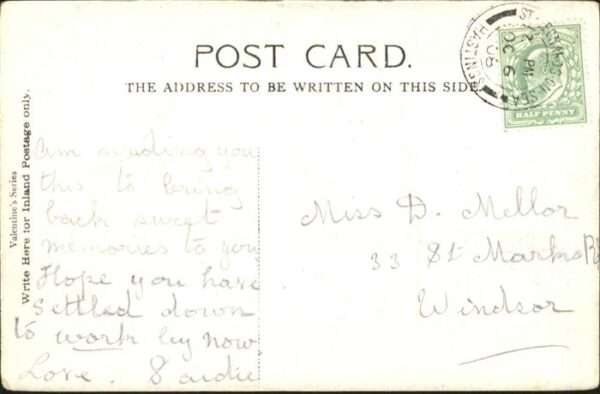 POST CARD.
THE ADDRESS TO BE WRITTEN ON THIS SIDE
Valentine's Series
Write Here for Inland Postage only.
HALF PENNY
HASTINGS
OC 6
am sending you
this to bring
back sweet
memories to you
Hope you have
settled down
to work by now
Love.
Miss D. Mellor
33 St Marks Rd
Windsor